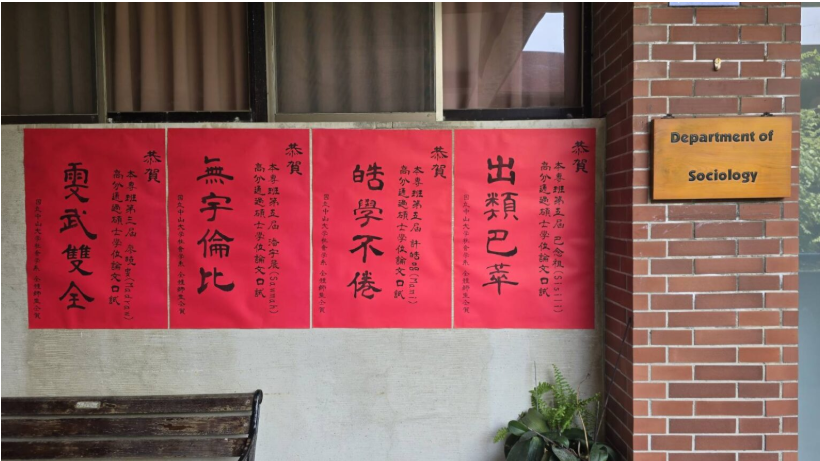 恭賀
本專班第五屆
高分通過碩士學位論文口試
出類巴萃
國立中山大學社會學系 全體師生仝賀
恭賀
本專班第五屆 許皓
高分通過碩士學位論文口試
皓學不倦
國立中山大學社會學系 全體師生仝賀
恭賀
本專班第五屆 潘宇
高分通過碩士學位論文口試
無宇倫比
國立中山大學社會學系 全體師生仝賀
恭賀
本專班第五屆
高分通過碩士學位論文口試
雯武雙全
國立中山大學社會學系 全體師生仝賀
Department of
Sociology